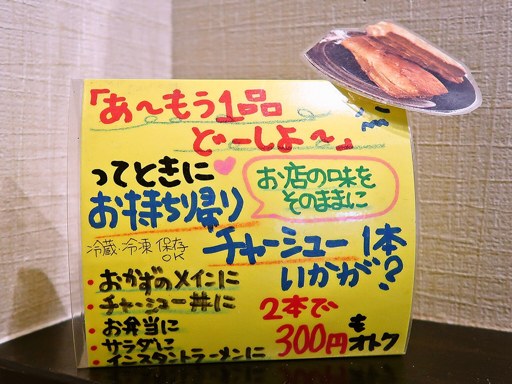 「あ〜もう1品
どーしよ〜」
ってときに
お店の味を
そのままに
お持ち帰り
チャーシュー1本
いかが?
冷蔵・冷凍 保存
OK
・おかずのメインに
・チャーシュー丼に
・お弁当に
・サラダに
・インスタントラーメンに
2本で
300円も
オトク